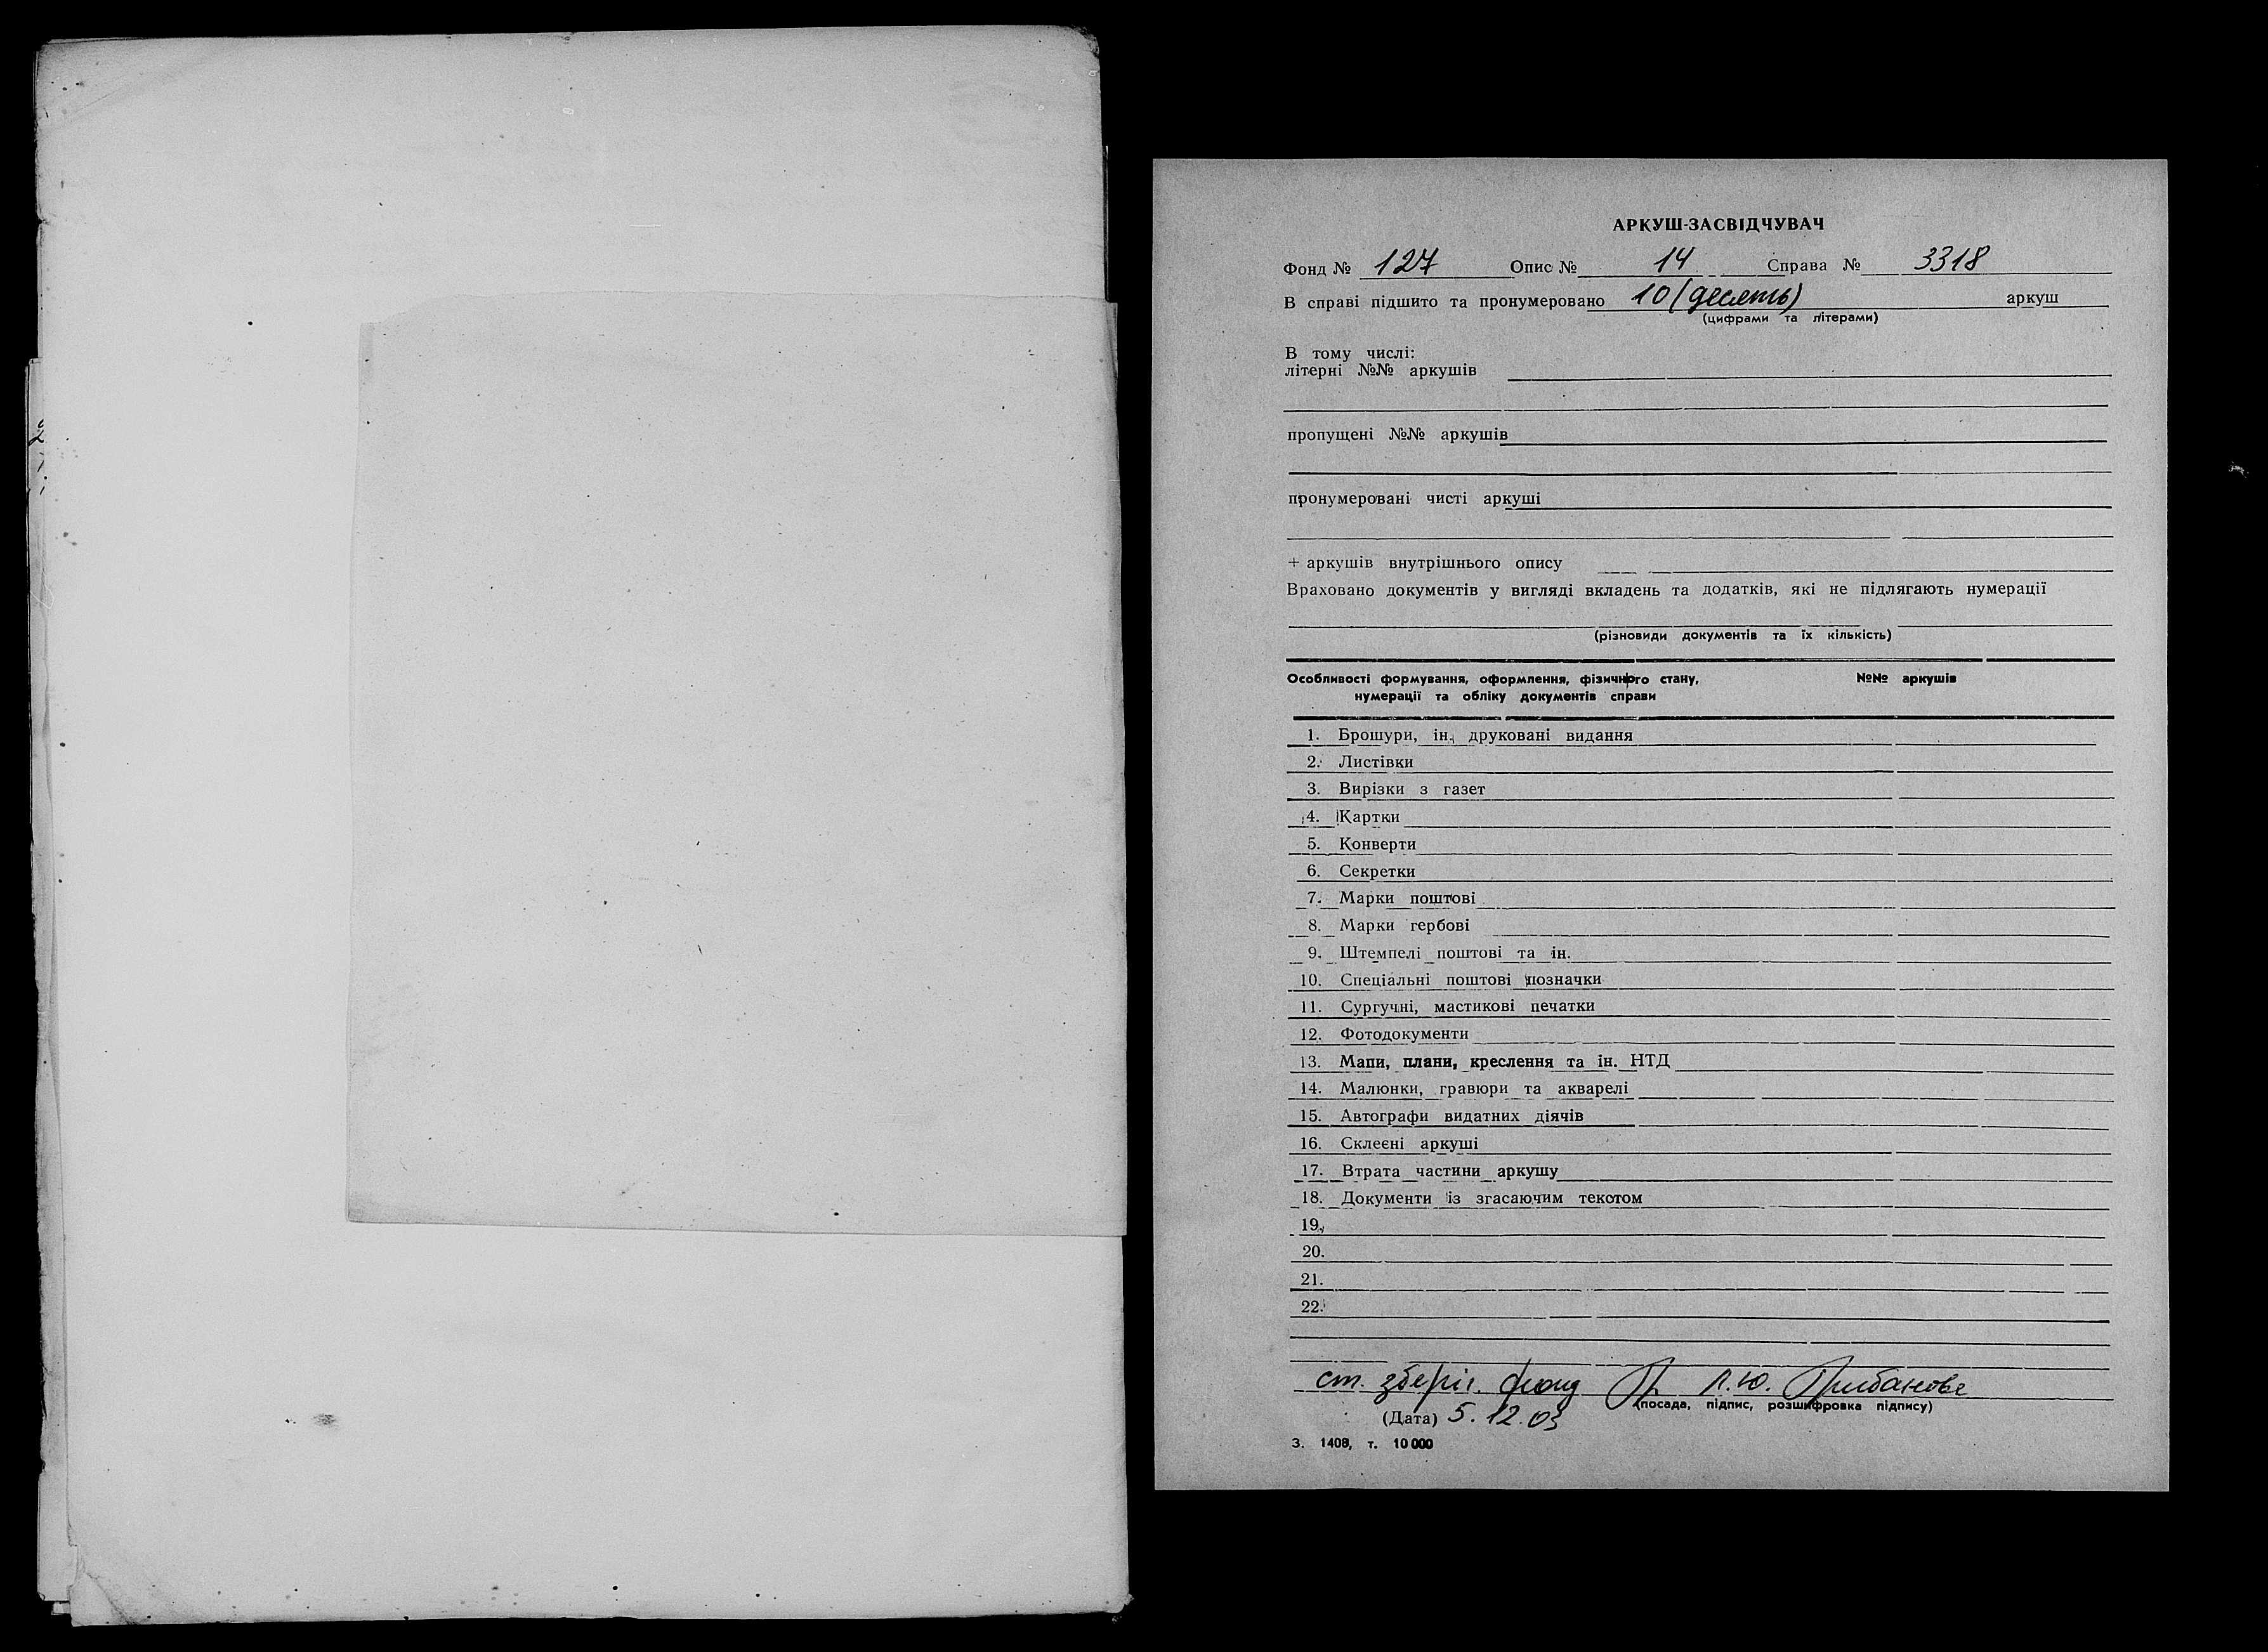 АРКУШ-ЗАСВІДЧУВАЧ
Фонд № 127 Опис № 14 Справа № 3318
В справі підшито та пронумеровано 10 (десять) аркуш
(цифрами та літерами)
В тому числі:
літерні №№ аркушів
пропущені №№ аркушів
пронумеровані чисті аркуші
+ аркушів внутрішнього опису
Враховано документів у вигляді вкладень та додатків, які не підлягають нумерації
(різновиди документів та їх кількість)
Особливості формування, оформлення, фізичного стану, №№ аркушів
нумерації та обліку документів справи
1. Брошури, ін. друковані видання
2. Листівки
3. Вирізки з газет
4. Картки
5. Конверти
6. Секретки
7. Марки поштові
8. Марки гербові
9. Штемпелі поштові та ін.
10. Спеціальні поштові позначки
11. Сургучні, мастикові печатки
12. Фотодокументи
13. Мапи, плани, креслення та ін. НТД
14. Малюнки, гравюри та акварелі
15. Автографи видатних діячів
16. Склеєні аркуші
17. Втрата частини аркушу
18. Документи із згасаючим текстом
19.
20.
21.
22.
ст. зберіг. фонд Л.Ю.
(посада, підпис, розшифровка підпису)
(Дата) 5.12.03
З. 1408, т. 10 000